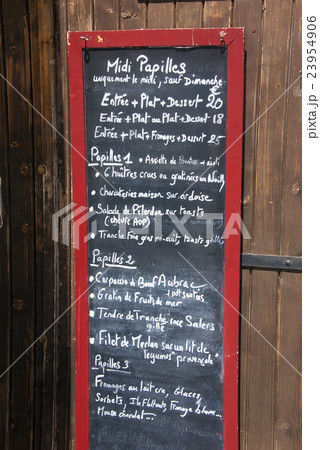 Midi Papilles
uniquement le midi, sauf Dimanche
Entrée + Plat + Dessert 20 €
Entrée + Plat ou Plat + Dessert 18
Entrée + Plat + Fromages + Dessert 25
Papilles 1 • Assiette de
6 huîtres crues ou gratinées au
• Charcuteries maison sur ardoise
• Salade de Pélardon sur toasts
(chèvre AOP)
• Tranche foie gras mi-cuit, toasts grillés
Papilles 2
• Carpaccio de Bœuf Aubrac
• Gratin de Fruits de mer
• Tendre de Tranche race Salers
grillé
• Filet de Merlan sur un lit de
légumes "provençale"
Papilles 3
Fromages au lait cru, Glaces,
Sorbets, Ile Flottante, Fromage blanc...
Mousse chocolat...
PIXTA
23954906